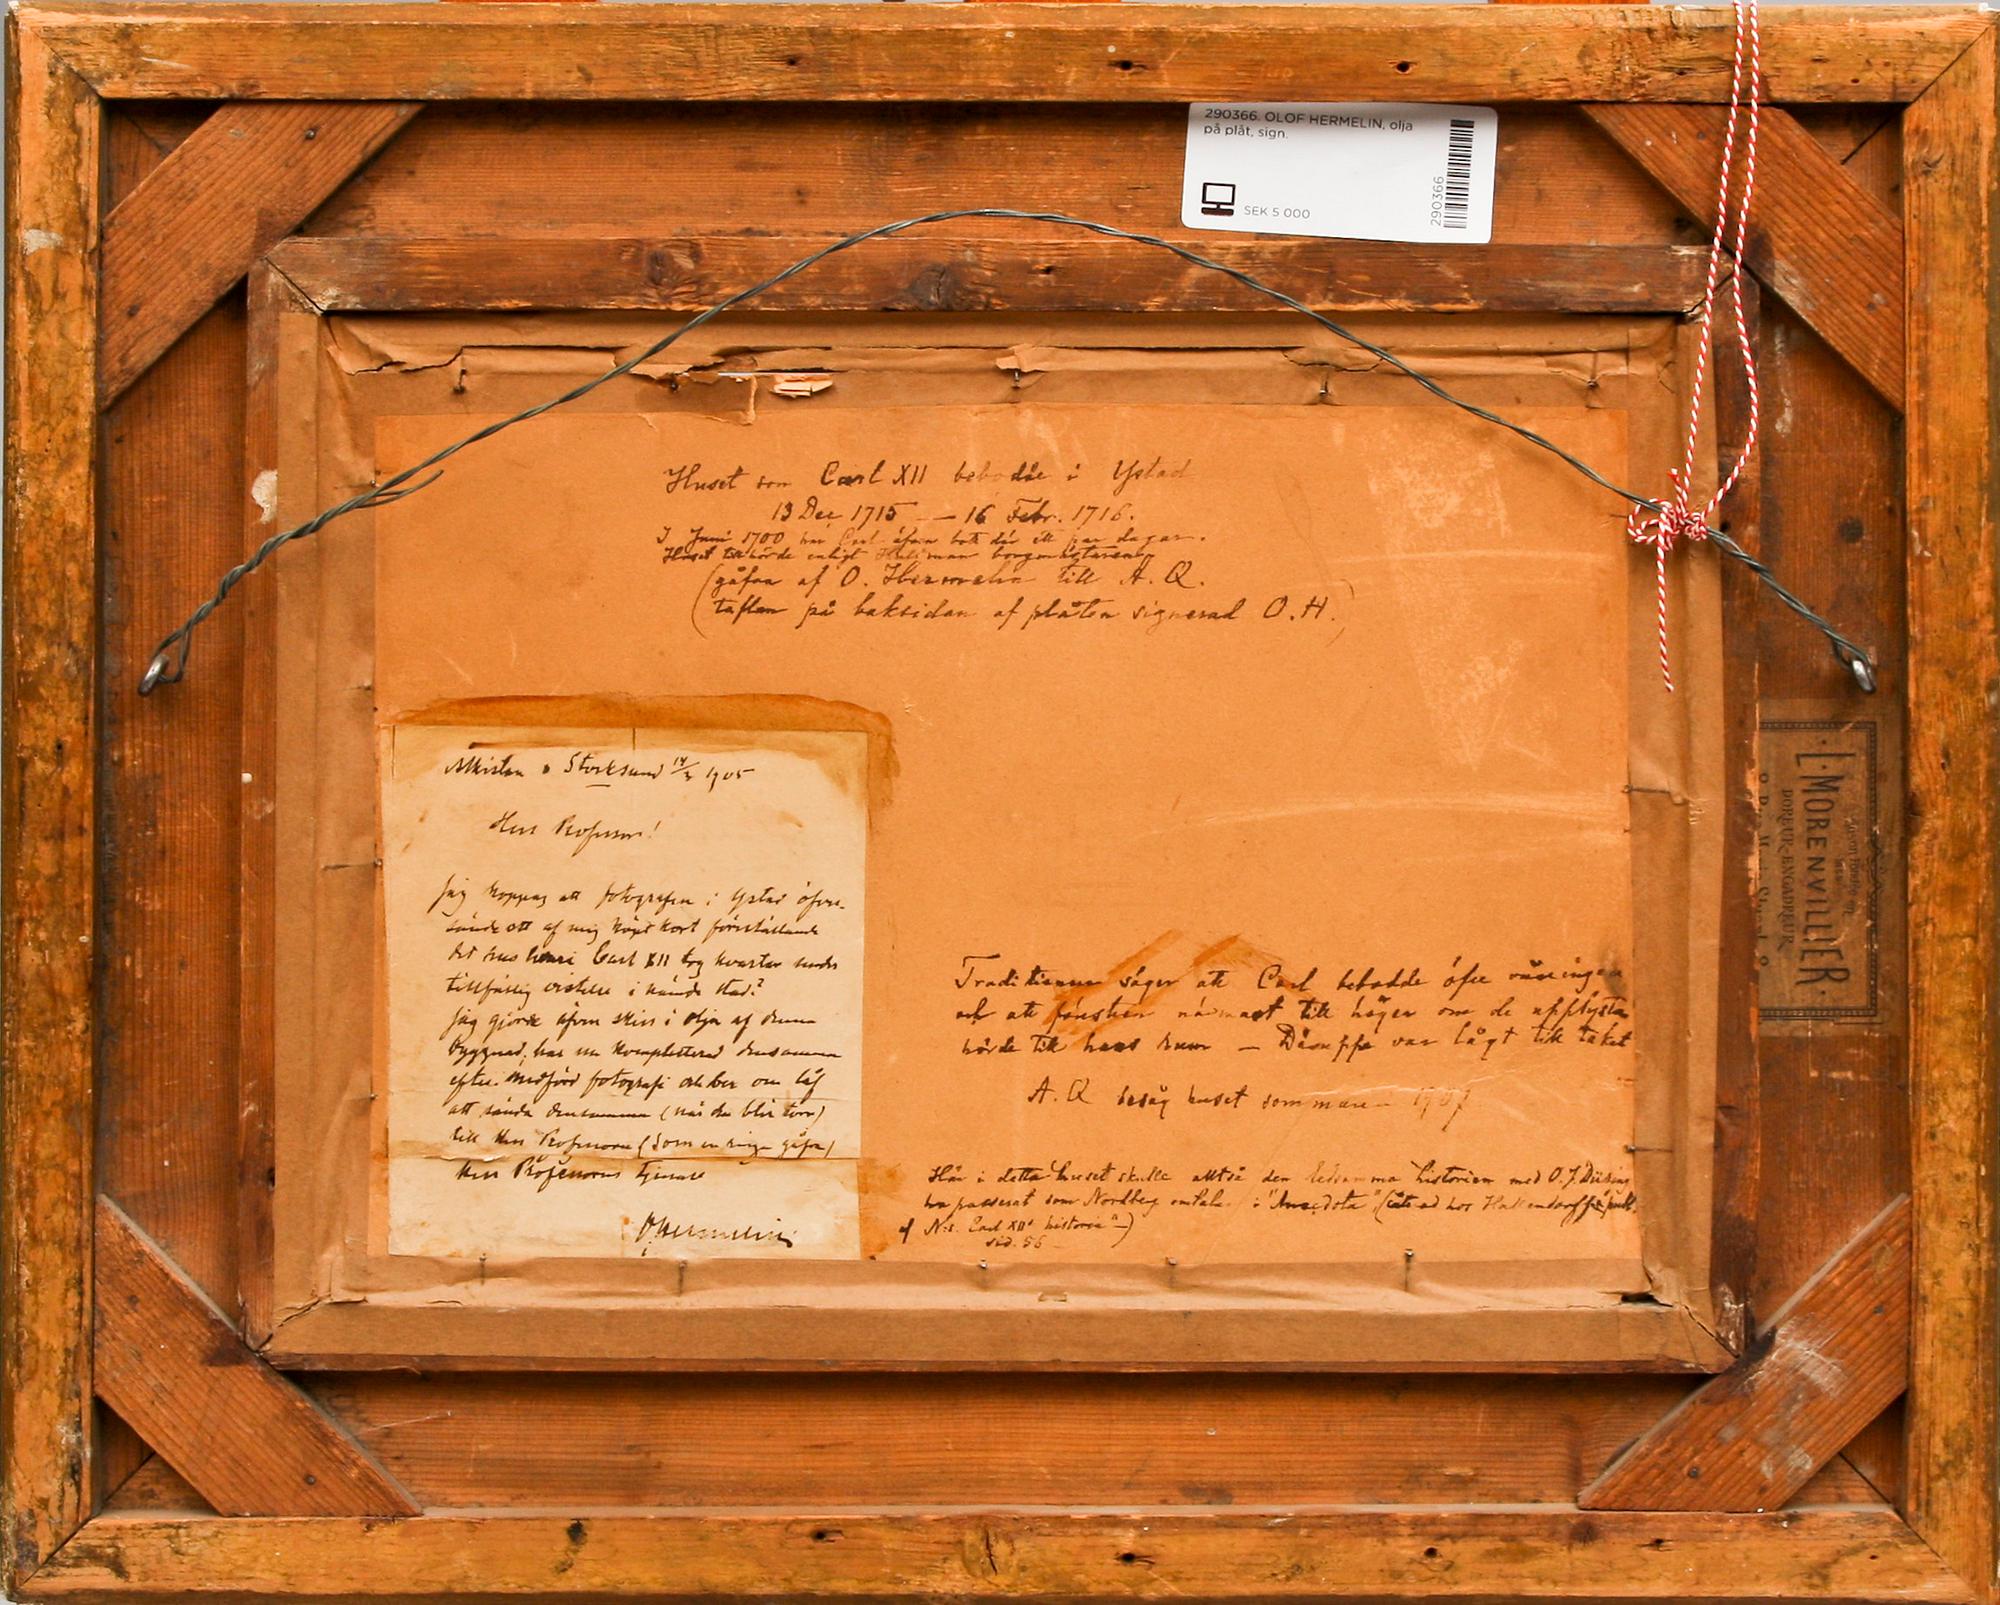 290366. OLOF HERMELIN, olja
på plåt, sign.
SEK 5 000
290366
Huset som Carl XII bebodde i Ystad
13 Dec 1715 — 16 Febr. 1716.
I Juni 1700 har Carl äfven bott där ett par dagar.
Huset tillhörde enligt borgmästaren
(gåfva af O. Hermelin till A. Q.
(taflan på baksidan af plåten signerad O.H.)
Stocksund 14/3 1905
Herr Professor!
Jag hoppas att fotografen i Ystad öfver-
sändt ett af mig köpt kort föreställande
det hus hvari Carl XII tog kvarter under
tillfällig vistelse i nämde stad?
Jag gjorde äfven skiss i olja af denna
byggnad, har nu kompletterat densamma
efter medförd fotografi och ber om låf
att sända densamma (när den blir torr)
till Herr Professorn (som en ringa gåfva)
Herr Professorns tjenare
O. Hermelin
Traditionen säger att Carl bebodde öfre våningen
och att fönstren närmast till höger om de upplysta
hörde till hans rum — Däruppe var lågt till taket
A. Q besåg huset sommaren 1907
Här i detta huset skulle alltså den ledsamma historien med O. J. Düring
ha passerat som Nordberg omtalar i "Anecdota" (
af N:s Carl XII' historia"—)
sid. 56
L. MORENVILLIER
DOREUR-ENCADREUR